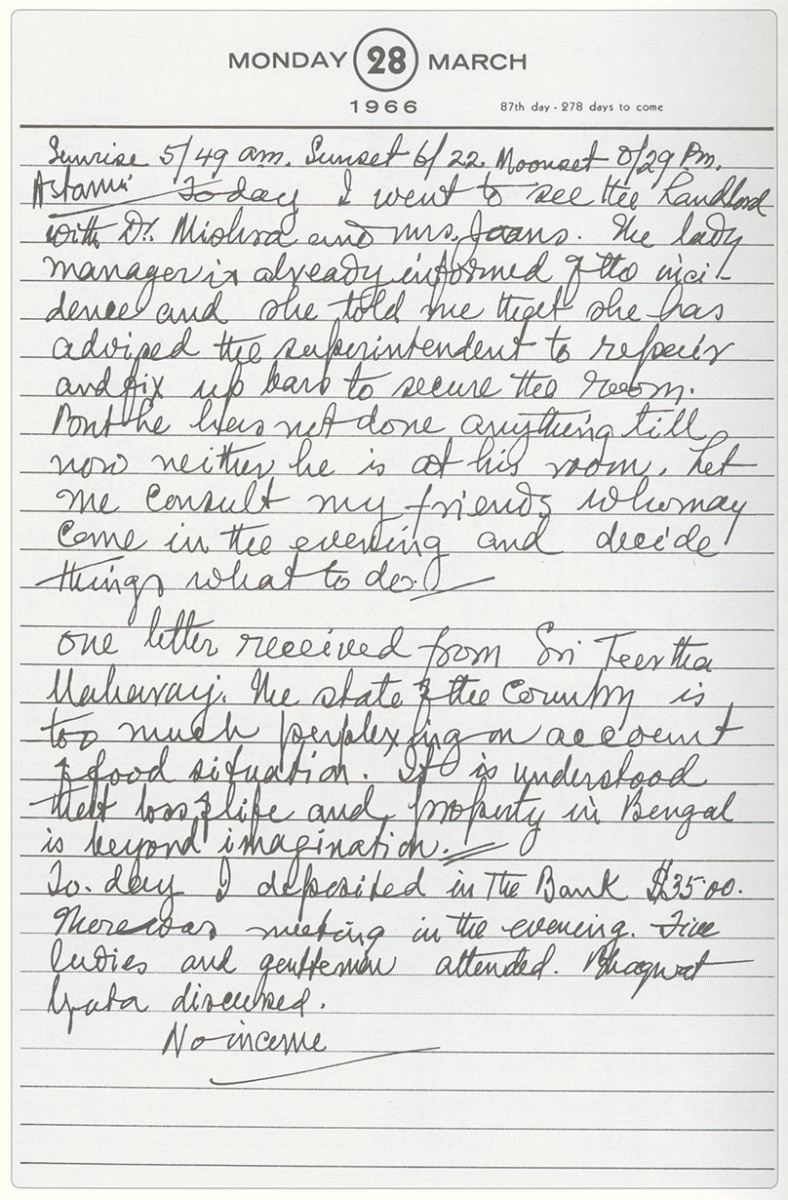 MONDAY 28 MARCH
1966 87th day - 278 days to come
Sunrise 5/49 am. Sunset 6/22. Moonset 0/29 Pm.
Astami To day I went to see the Landlord
with Dr. Mishra and Mrs. . The lady
manager is already informed of the inci-
dence and she told me that she has
advised the superintendent to repair
and fix up bars to secure the room.
But he has not done anything till
now neither he is at his room. Let
me consult my friends who may
come in the evening and decide
things what to do.
One letter received from Sri Teertha
Maharaj. The state of the Country is
too much perplexing on account
of food situation. It is understood
that loss of life and property in Bengal
is beyond imagination.
To-day I deposited in the Bank $35.00.
There was meeting in the evening. Five
ladies and gentlemen attended. Bhagwat
Gita discussed.
No income